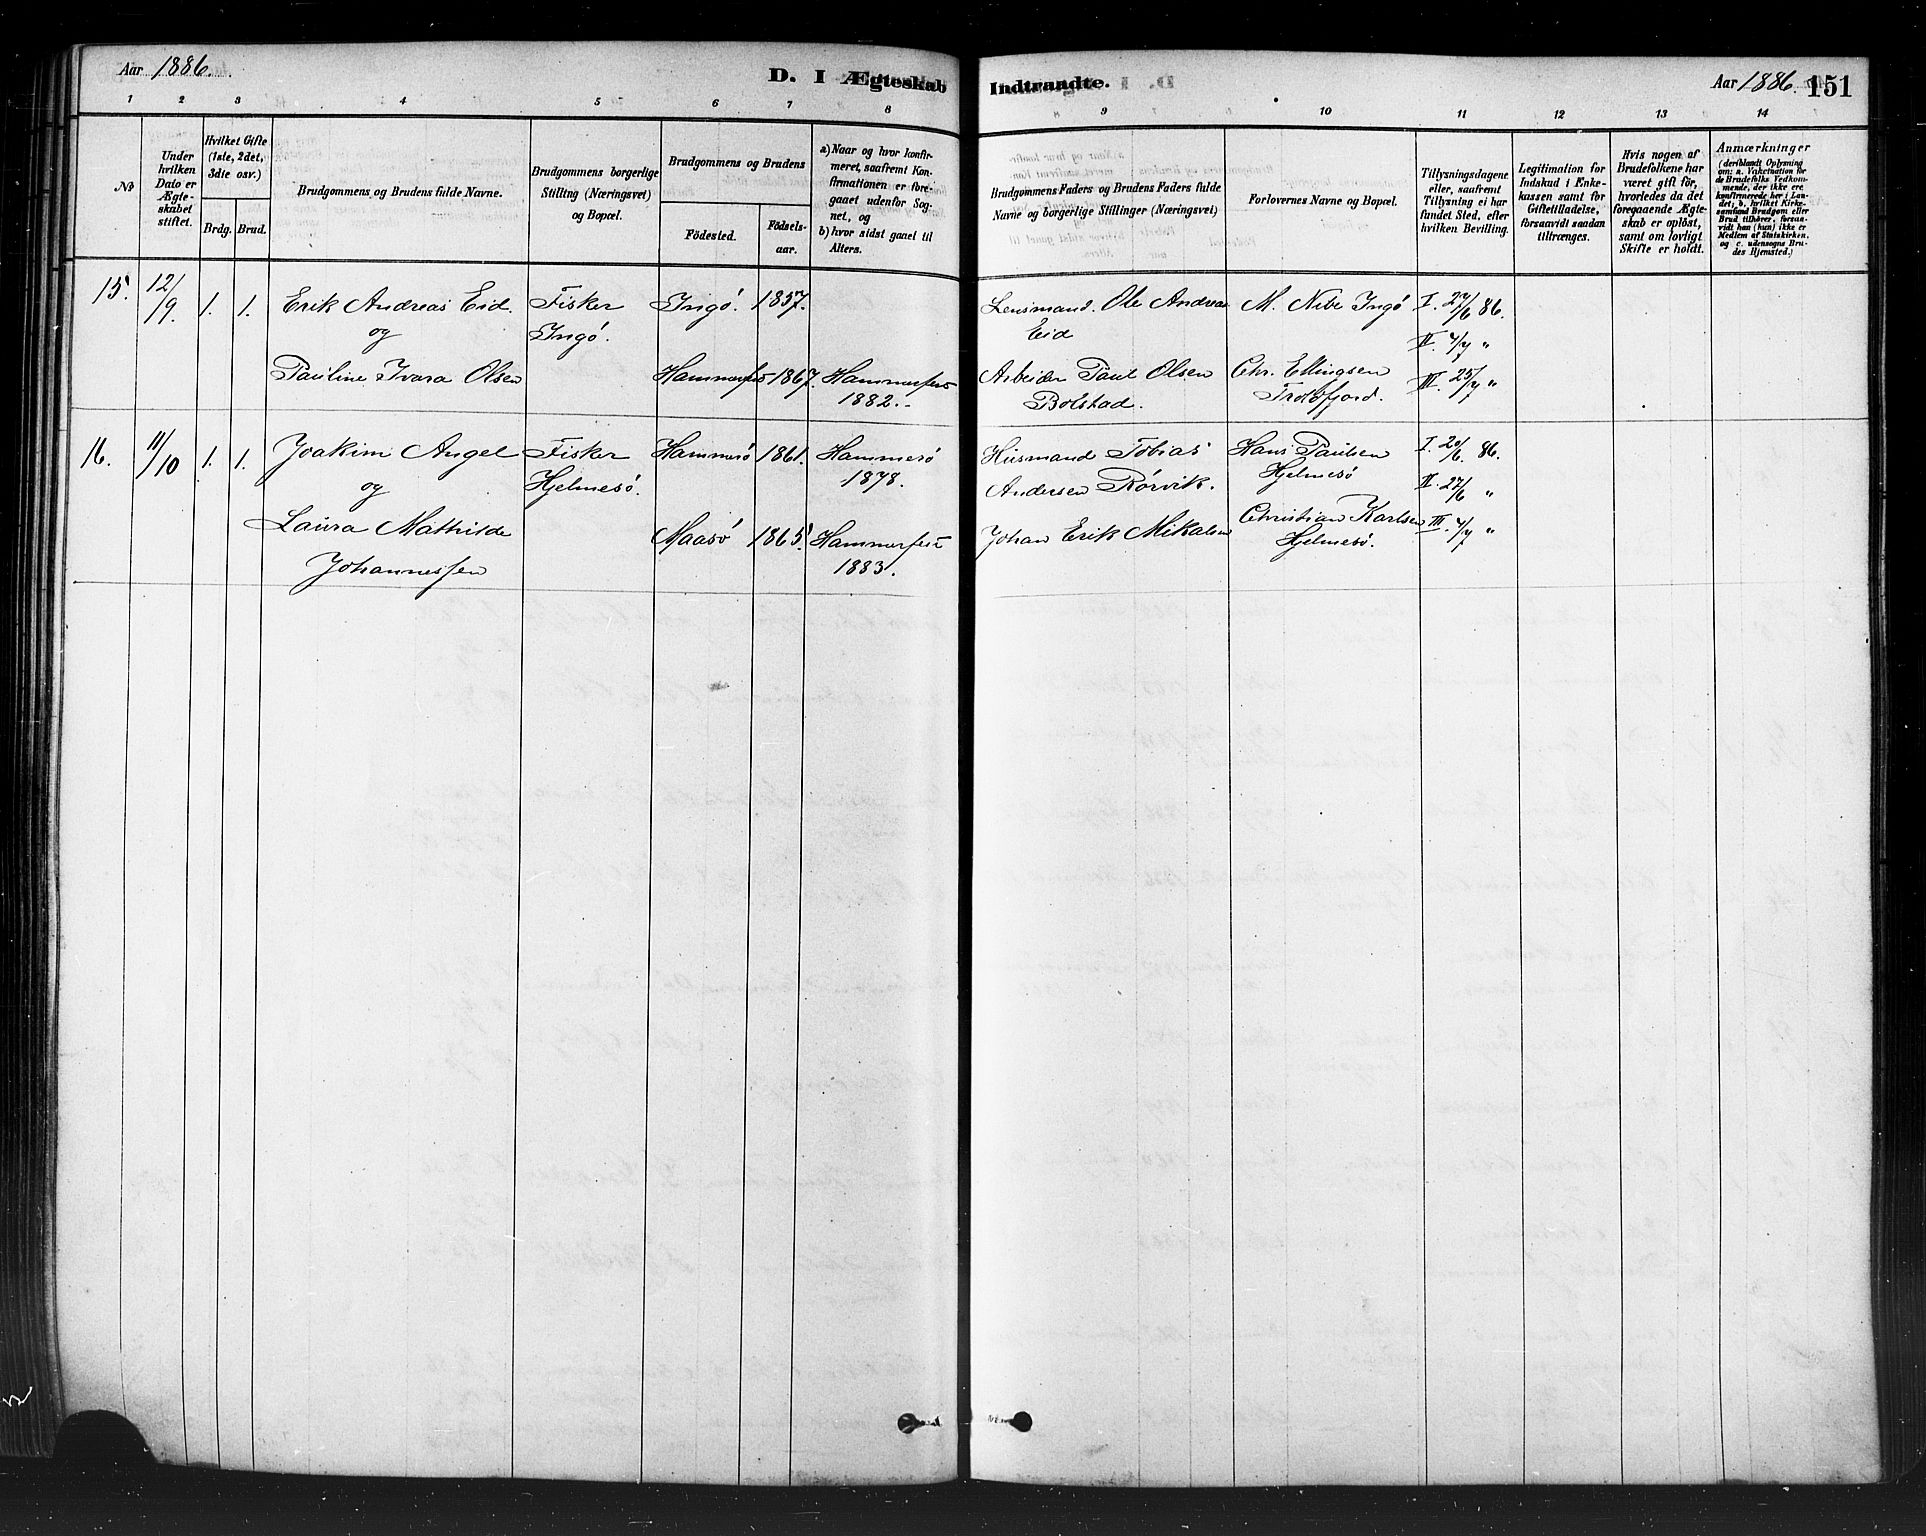 Aar 1886.
D. I Ægteskab
Indtrandte.
Aar 1886. 151
1 2 3 4 5 6 7 8
9 10 11 12 13 14
No
Under hvilken Dato er Ægteskabet stiftet.
Hvilket Gifte (1ste, 2det, 3die osv.)
Brdg. Brud.
Brudgommens og Brudens fulde Navne.
Brudgommens borgerlige Stilling (Næringsvei) og Bopæl.
Brudgommens og Brudens
Födested.
Födselsaar.
a) Naar og hvor konfirmeret, saafremt Konfirmationen er foregaaet udenfor Sognet, og
b) hvor sidst gaael til Alters.
Brudgommens Faders og Brudens Faders fulde Navne og borgerlige Stillinger (Næringsvei)
Forlovernes Navne og Bopæl.
Tillysningsdagene eller, saafremt Tillysning ei har fundet Sted, efter hvilken Bevilling.
Legitimation for Indskud i Enkekassen samt for Giftetilladelse, forsaavidt saadan tiltrænges.
Hvis nogen af Brudefolkene har været gift för, hvorledes da det foregaaende Ægteskab er oplöst, samt om lovligt Skifte er holdt.
Anmærkninger
(deriblandt Oplysning om: a. Vakcination for de Brudefolks Vedkommende, der ikke ere konfirmerede her i Landet; b. hvilket Kirkesamfund Brudgom eller Brud tilhörer, forsaavidt han (hun) ikke er Medlem af Statskirken, og c. udensogns Brudes Hjemsted.)
15. 12/9. 1. 1. Erik Andreas Eid. Fisker Ingö. 1857. Lensmand. Ole Andreas M. Nibe Ingö I. 27/6 86.
og Ingö. Eid II. 4/7 "
Pauline Ivara Olsen Hammerfest 1867. Hammerfest Arbeider Paul Olsen Chr. Ellingsen III. 25/7 "
1882. Bolstad. Troldfjord.
16. 11/10 1. 1. Joakim Angel Fisker Hammerö 1861. Hammerö Husmand Tobias Hans Paulsen I. 20/6. 86.
og Hjelmesö. 1878. Andersen Rörvik. Hjelmesö II. 27/6 "
Laura Mathilde Maasö 1865. Hammerfest Johan Erik Mikalsen Christian Karlsen III. 4/7 "
Johannessen 1883. Hjelmesö.